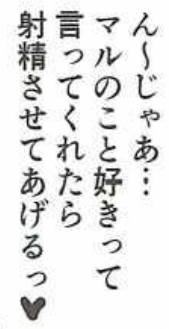 ん～じゃあ…
マルのこと好きって
言ってくれたら
射精させてあげるっ♥